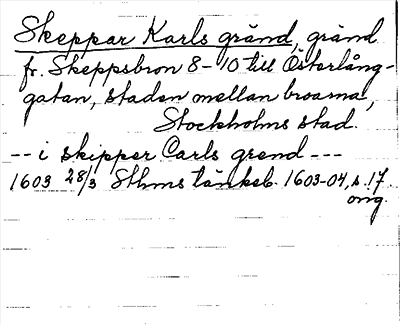 Skeppar Karls gränd, gränd
fr. Skeppsbron 8-10 till Österlång-
gatan, staden mellan broarna,
Stockholms stad.
-- i skipper Carls grend ---
1603 28/3 Sthms tänkeb. 1603-04, s. 17
orig.